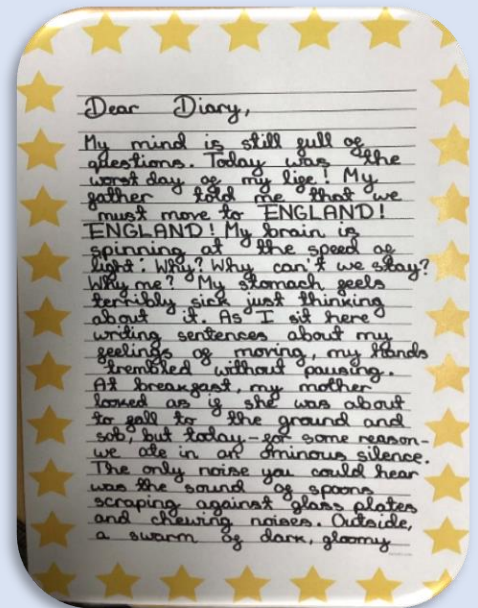 Dear Diary,
My mind is still full of
questions. Today was the
worst day of my life! My
father told me that we
must move to ENGLAND!
ENGLAND! My brain is
spinning at the speed of
light. Why? Why can't we stay?
Why me? My stomach feels
terribly sick just thinking
about it. As I sit here
writing sentences about my
feelings of moving, my hands
trembled without pausing.
At breakfast, my mother
looked as if she was about
to fall to the ground and
sob, but today-for some reason-
we ate in an ominous silence.
The only noise you could hear
was the sound of spoons
scraping against glass plates
and chewing noises. Outside,
a swarm of dark, gloomy